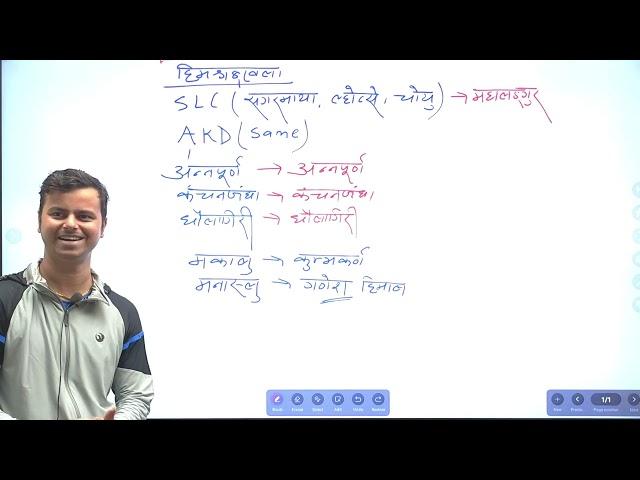 हिमश्रृङ्खला
SLC (सगरमाथा, ल्होत्से, चोयु) → महालङ्गुर
AKD (same)
अन्नपूर्ण → अन्नपूर्ण
कंचनजंघा → कंचनजंघा
धौलागिरी → धौलागिरी
मकालु → कुम्भकर्ण
मनास्लु → गणेश हिमाल
Book Eraser Select Add Undo Redo
New Previous 1/1 Page number Next